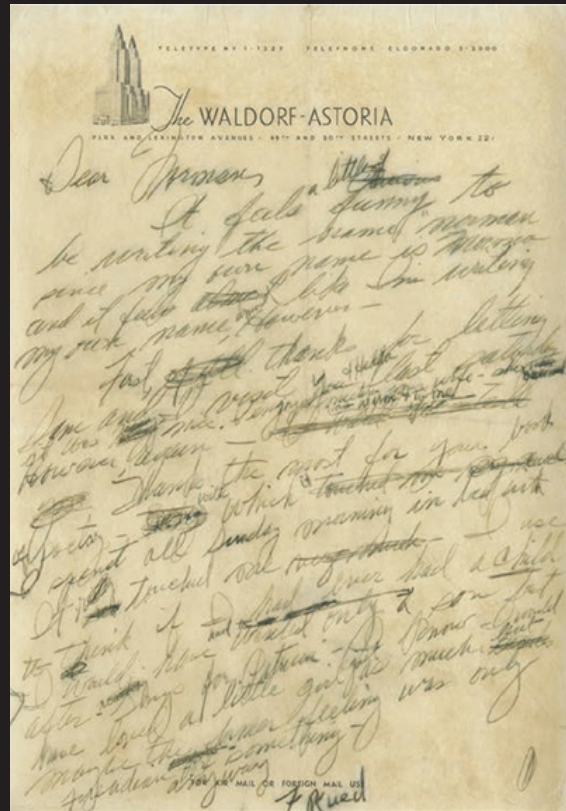 TELETYPE NY 1-1325 TELEPHONE ELDORADO 5-3000
The WALDORF-ASTORIA
PARK AND LEXINGTON AVENUES · 49TH AND 50TH STREETS · NEW YORK 22
Dear Norman,
a little
It feels funny to
be writing the name norman
since my own name is Norma
and it feels like I'm writing
my own name, However—
First, thanks for letting
you & Hedda
and I visit last saturday
so was nice. I enjoyed your wife
However again—
Thanks the most for your book
of Poetry— with which
spent all Sunday morning in bed with
It touched me I use
to think if I had ever had a child
I would have wanted only a son but
after for Autumn I know I would
have loved a little girl as much but
maybe the former feeling was only
Freudian something
anyway
FOR AIR MAIL OR FOREIGN MAIL USE
Freud